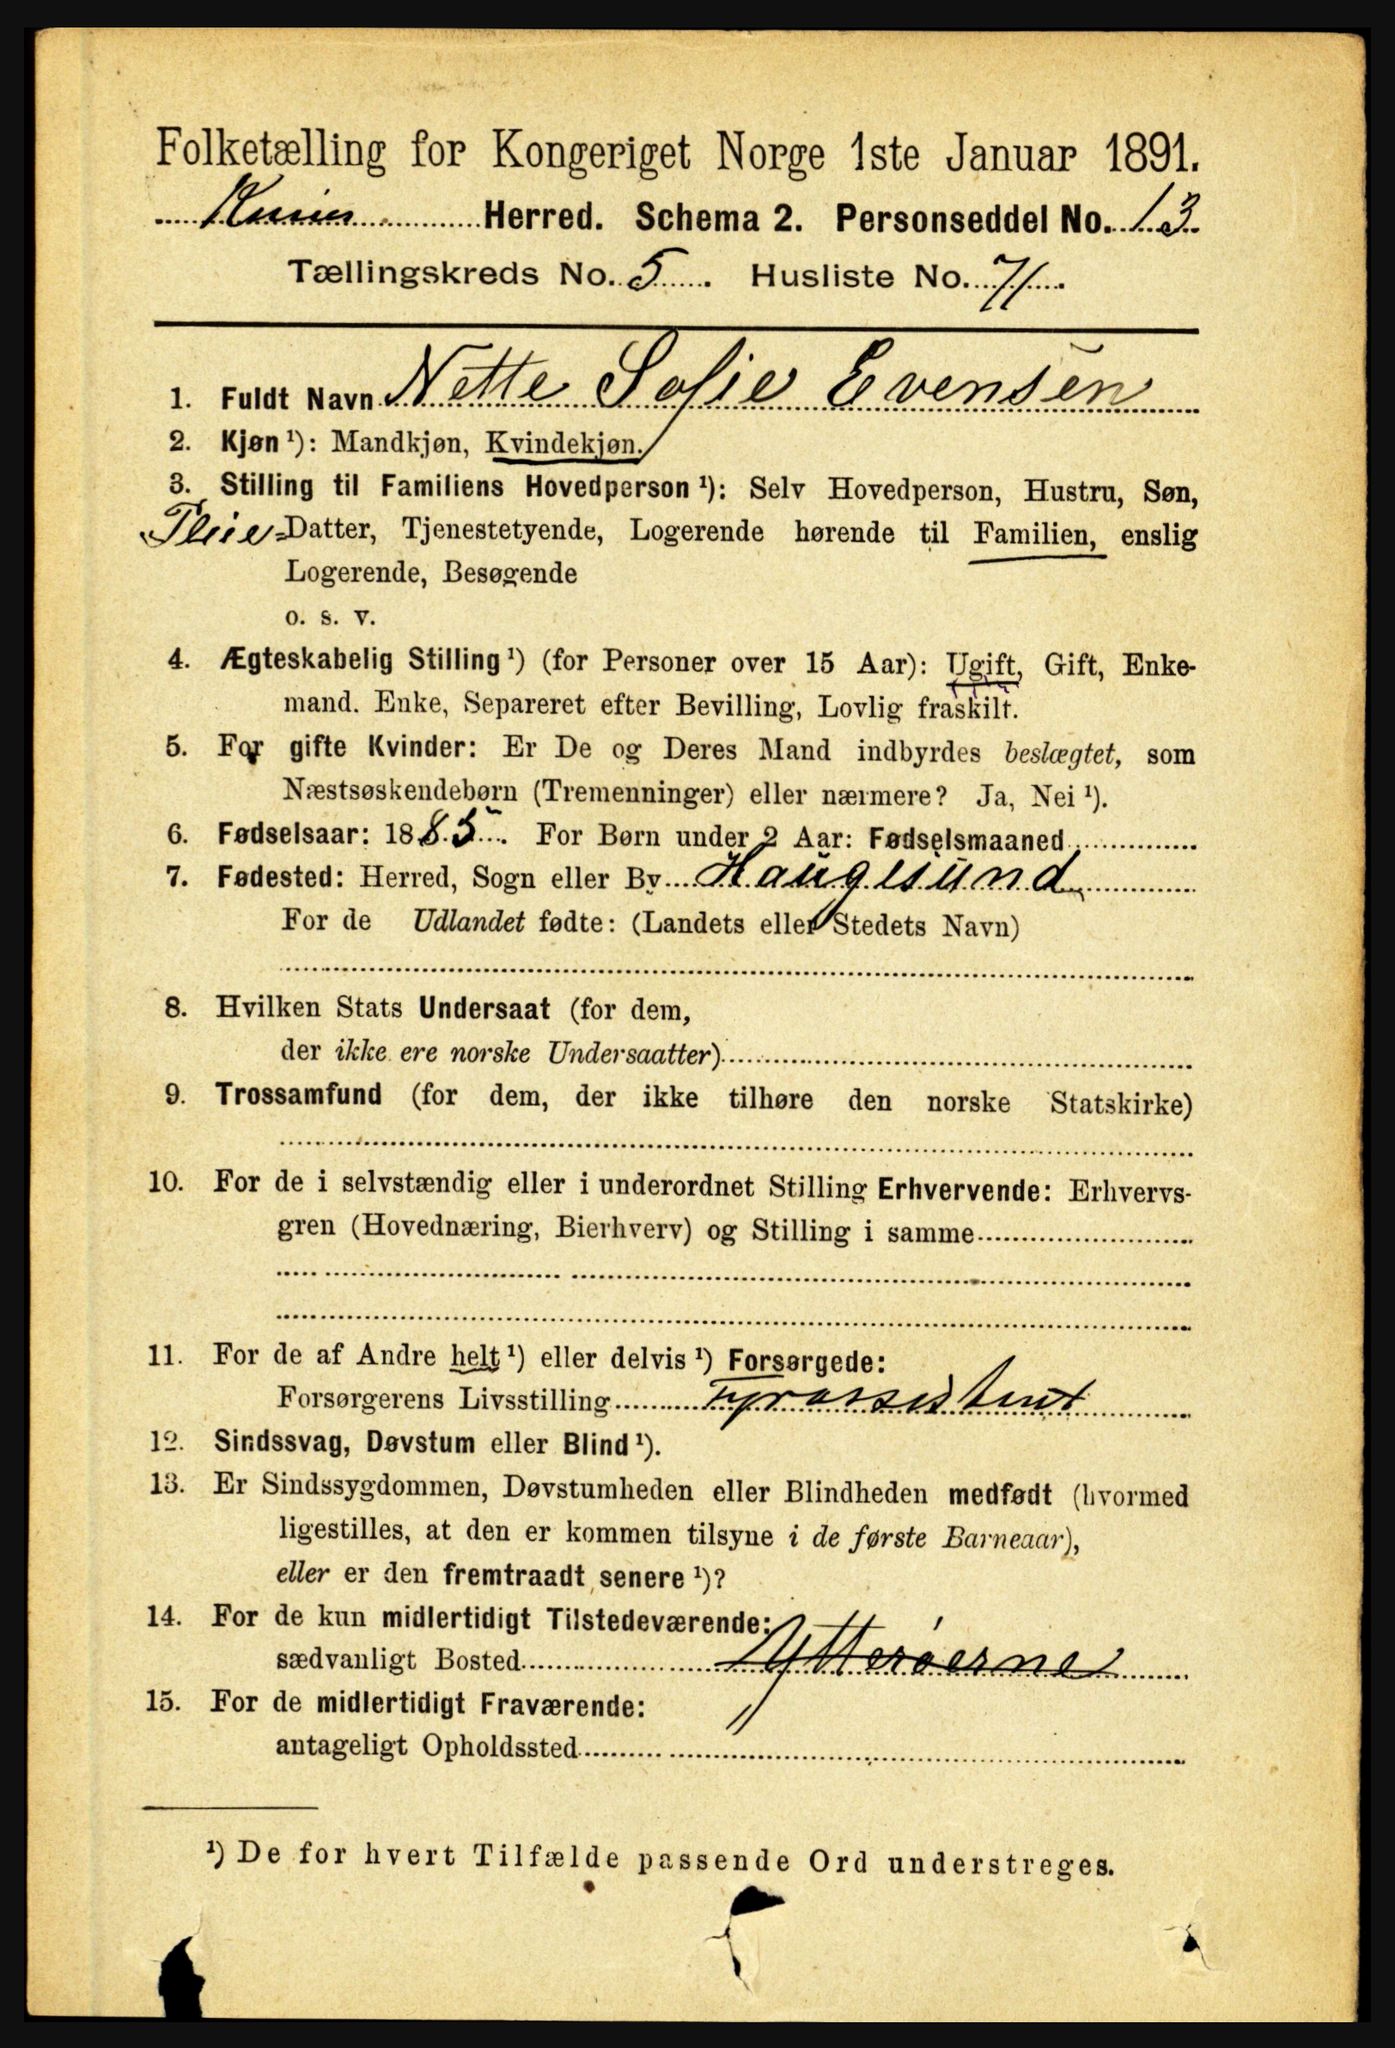 Folketælling for Kongeriget Norge 1ste Januar 1891.
Kinn Herred. Schema 2. Personseddel No. 13
Tællingskreds No. 5. Husliste No. 71.
1. Fuldt Navn Nette Sofie Evensen
2. Kjøn ¹): Mandkjøn, Kvindekjøn.
3. Stilling til Familiens Hovedperson ¹): Selv Hovedperson, Hustru, Søn,
Pleie= Datter, Tjenestetyende, Logerende hørende til Familien, enslig
Logerende, Besøgende
o. s. v.
4. Ægteskabelig Stilling ¹) (for Personer over 15 Aar): Ugift, Gift, Enke-
mand. Enke, Separeret efter Bevilling, Lovlig fraskilt.
5. For gifte Kvinder: Er De og Deres Mand indbyrdes beslægtet, som
Næstsøskendebørn (Tremenninger) eller nærmere? Ja, Nei ¹).
6. Fødselsaar: 1885. For Børn under 2 Aar: Fødselsmaaned
7. Fødested: Herred, Sogn eller By Haugesund
For de Udlandet fødte: (Landets eller Stedets Navn)
8. Hvilken Stats Undersaat (for dem,
der ikke ere norske Undersaatter)
9. Trossamfund (for dem, der ikke tilhøre den norske Statskirke)
10. For de i selvstændig eller i underordnet Stilling Erhvervende: Erhvervs-
gren (Hovednæring, Bierhverv) og Stilling i samme
11. For de af Andre helt ¹) eller delvis ¹) Forsørgede:
Forsørgerens Livsstilling Fyrassistent
12. Sindssvag, Døvstum eller Blind ¹).
13. Er Sindssygdommen, Døvstumheden eller Blindheden medfødt (hvormed
ligestilles, at den er kommen tilsyne i de første Barneaar),
eller er den fremtraadt senere ¹)?
14. For de kun midlertidigt Tilstedeværende:
sædvanligt Bosted Ytterøerne
15. For de midlertidigt Fraværende: "
antageligt Opholdssted
¹) De for hvert Tilfælde passende Ord understreges.